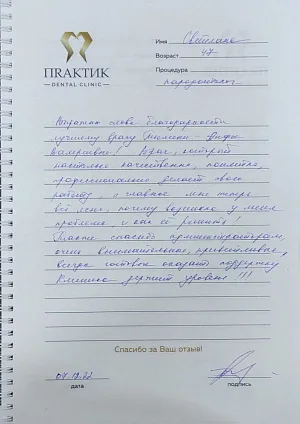 ПRАКТИК
DENTAL CLINIC
Имя Светлана
Возраст 47
Процедура
пародонтолог
Выражаю слова благодарности
лучшему врачу
Валерьевне! Врач, который
настолько качественно, понятно,
профессионально делает свою
работу, а главное мне теперь
всё ясно, почему возникла у меня
проблема и как её решить!
Также спасибо администраторам,
очень внимательные, приветливые,
всегда готовы оказать поддержку
Клиника держит уровень!!!
Спасибо за Ваш отзыв!
дата
подпись